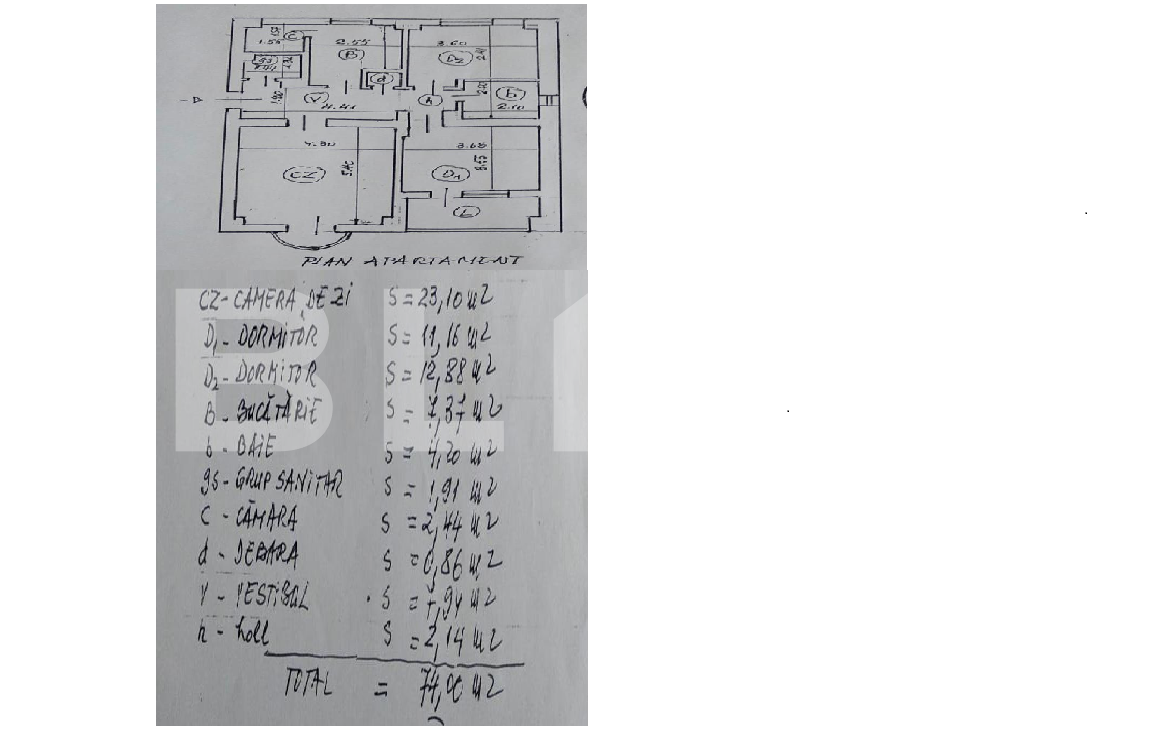 C
1.50
2.55
B
3.60
D2
d
b
2.10
V
4.41
1.80
h
4.80
3.65
5.40
CZ
D1
L
PLAN APARTAMENT
CZ - CAMERA DE ZI S = 23,10 m2
D1 - DORMITOR S = 11,16 m2
D2 - DORMITOR S = 12,88 m2
B - BUCĂTĂRIE S = 7,37 m2
b - BAIE S = 4,20 m2
gs - GRUP SANITAR S = 1,91 m2
C - CĂMARA S = 2,44 m2
d - DEBARA S = 0,86 m2
V - VESTIBUL S = 7,94 m2
h - holl S = 2,14 m2
TOTAL = 74,00 m2
BL